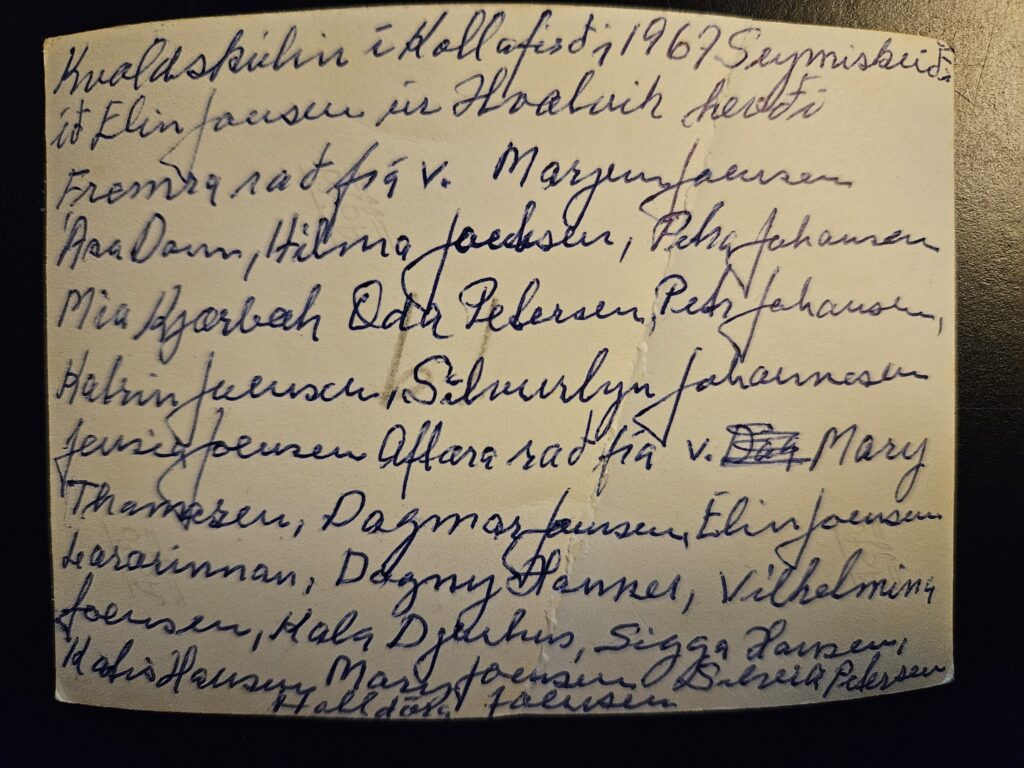 Kvøldskúlin í Kollafirði 1967 Seymiskeið
ið Elin Joensen úr Hvalvík hevði
Fremra rað frá v. Marjun Joensen
Ása Dam, Hilma Jacobsen, Petra Johansen
Mia Kjærbæk Oda Petersen, Petra Johansen,
Katrin Joensen, Silvurlyn Johannesen
Jensia Joensen Aftara rað frá v. Mary
Thomsen, Dagmar Joensen, Elin Joensen
Lærarinnan, Dagny Hannes, Vilhelmina
Joensen, Kala Djurhus, Sigga Hansen,
Hansen Mary Joensen Petersen
Halldóra Joensen